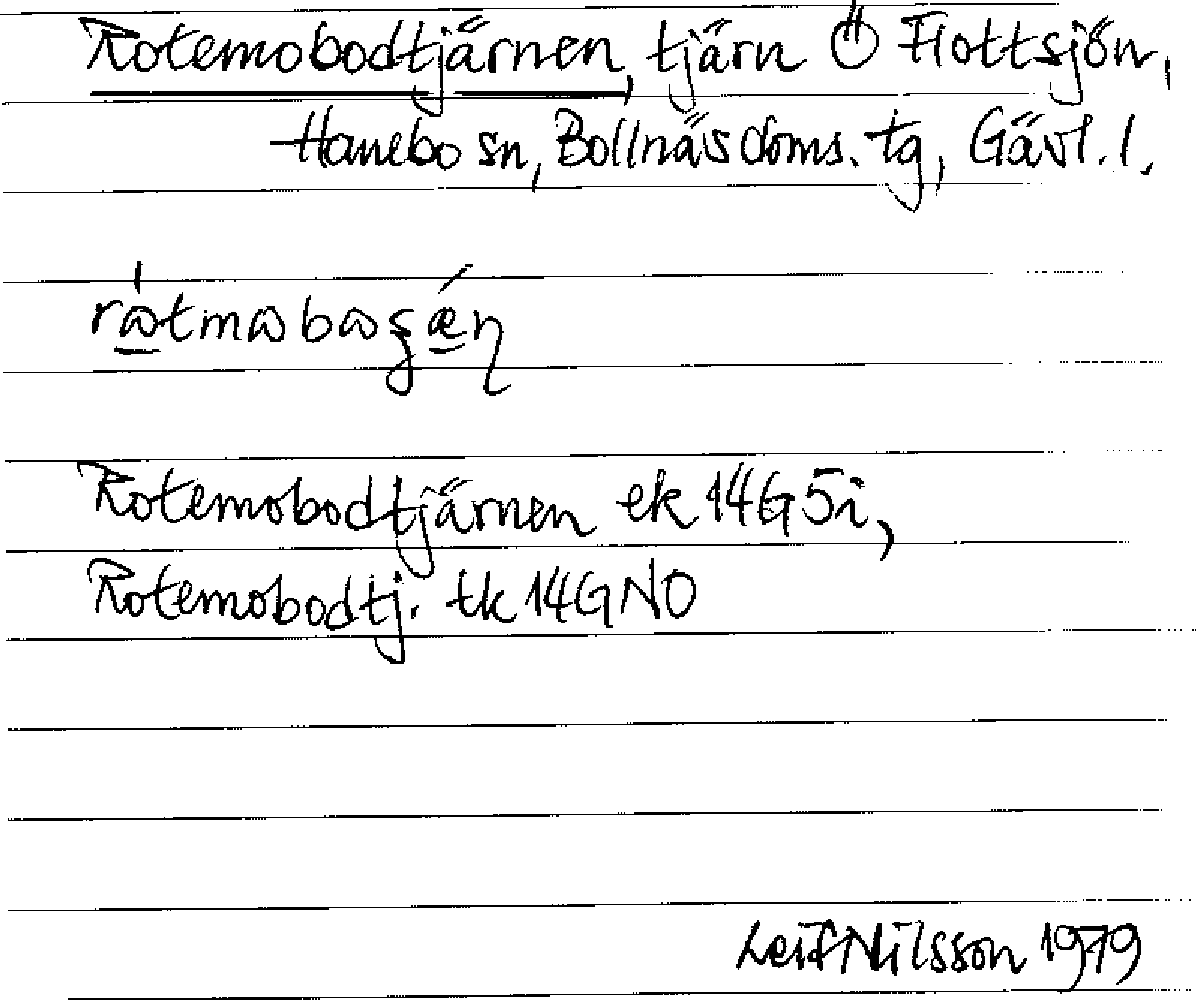 Rotemobodtjärnen, tjärn Ö Flottsjön,
Hanebo sn, Bollnäs doms. tg, Gävl. l.
Rotemobodtjärnen ek 14G5i,
Rotemobodtj. tk 14GNO
Leif Nilsson 1979